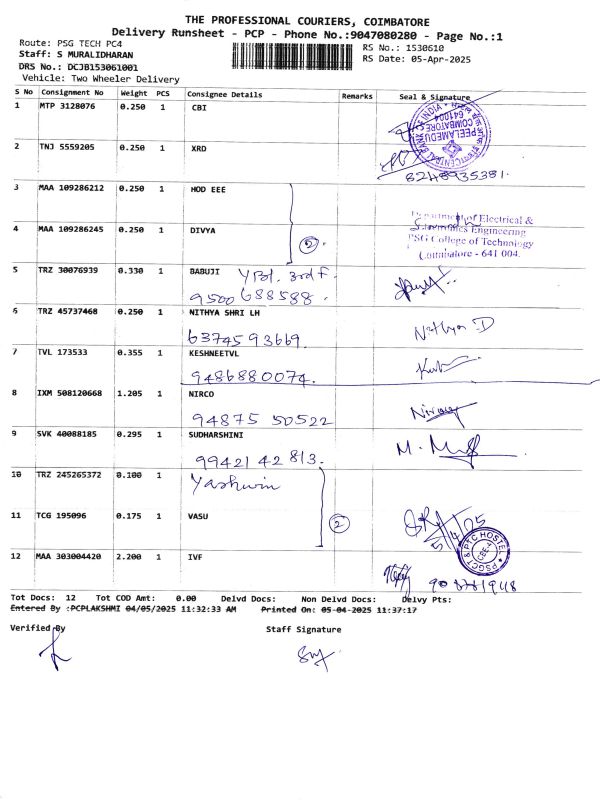 THE PROFESSIONAL COURIERS, COIMBATORE
Delivery Runsheet - PCP - Phone No.:9047080280 - Page No.:1
Route: PSG TECH PC4
RS No.: 1530610
Staff: S MURALIDHARAN
RS Date: 05-Apr-2025
DRS No.: DCJB153061001
Vehicle: Two Wheeler Delivery
S No Consignment No Weight PCS Consignee Details Remarks Seal & Signature
1 MTP 3128076 0.250 1 CBI
CENTRAL BANK OF INDIA PEELAMEDU COIMBATORE 641004
2 TNJ 5559205 0.250 1 XRD
8248935381.
3 MAA 109286212 0.250 1 HOD EEE
Department of Electrical &
Electronics Engineering
4 MAA 109286245 0.250 1 DIVYA
2
PSG College of Technology
Coimbatore - 641 004.
5 TRZ 30076939 0.330 1 BABUJI
3rd F.
9500688588.
6 TRZ 45737468 0.250 1 NITHYA SHRI LH
6374593669.
Nithya D
7 TVL 173533 0.355 1 KESHNEETVL
9486880074.
8 IXM 508120668 1.205 1 NIRCO
94875 50522
9 SVK 40088185 0.295 1 SUDHARSHINI
99421 42813.
10 TRZ 245265372 0.100 1 Yashwin
11 TCG 195096 0.175 1 VASU
2
5/4/25
PSGCT & PTC HOSTEL CBE-4
12 MAA 303004420 2.200 1 IVF
Tot Docs: 12 Tot COD Amt: 0.00 Delvd Docs: Non Delvd Docs: Delvy Pts:
Entered By :PCPLAKSHMI 04/05/2025 11:32:33 AM Printed On: 05-04-2025 11:37:17
Verified By
Staff Signature